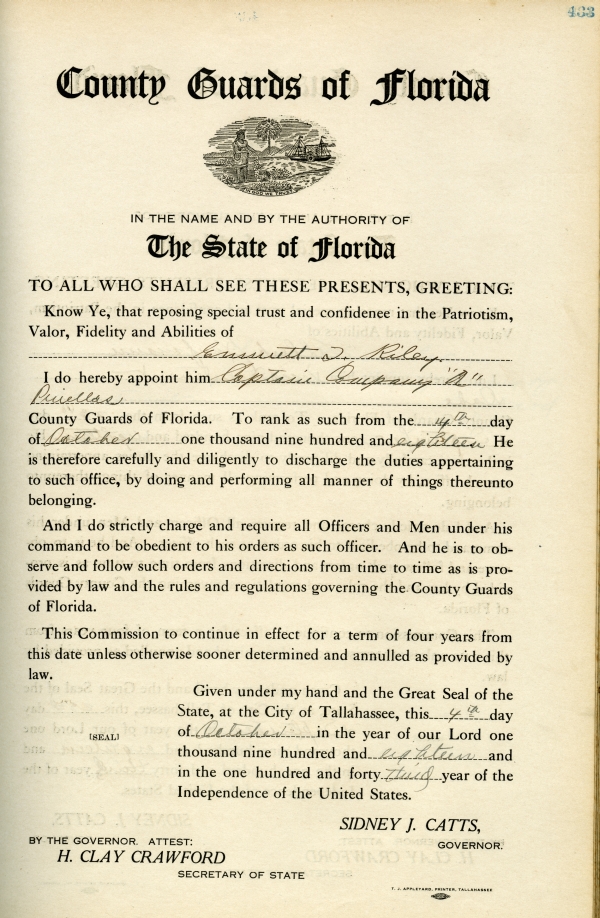 433
County Guards of Florida
IN GOD WE TRUST
IN THE NAME AND BY THE AUTHORITY OF
The State of Florida
TO ALL WHO SHALL SEE THESE PRESENTS, GREETING:
Know Ye, that reposing special trust and confidenee in the Patriotism,
Valor, Fidelity and Abilities of
Emmett J. Riley.
I do hereby appoint him Captain Company "A"
Pinellas
County Guards of Florida. To rank as such from the 4th day
of October one thousand nine hundred and eighteen He
is therefore carefully and diligently to discharge the duties appertaining
to such office, by doing and performing all manner of things thereunto
belonging.
And I do strictly charge and require all Officers and Men under his
command to be obedient to his orders as such officer. And he is to ob-
serve and follow such orders and directions from time to time as is pro-
vided by law and the rules and regulations governing the County Guards
of Florida.
This Commission to continue in effect for a term of four years from
this date unless otherwise sooner determined and annulled as provided by
law.
Given under my hand and the Great Seal of the
State, at the City of Tallahassee, this 4th day
[SEAL] of October in the year of our Lord one
thousand nine hundred and eighteen and
in the one hundred and forty third year of the
Independence of the United States.
SIDNEY J. CATTS,
GOVERNOR.
BY THE GOVERNOR. ATTEST:
H. CLAY CRAWFORD
SECRETARY OF STATE
T. J. APPLEYARD, PRINTER, TALLAHASSEE